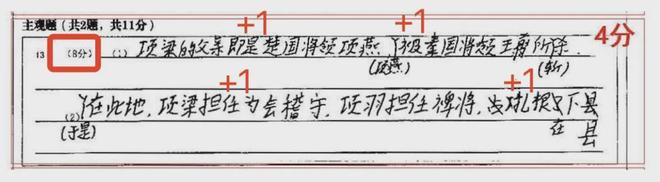 主观题（共2题，共11分）
+1 +1 4分
13 （8分） （1） 项梁的父亲即是楚国将领项燕，被秦国将领王翦所杀．
（项燕） （斩）
+1 +1
（2）在此地，项梁担任为会稽守，项羽担任裨将，占扎根 下县
（于是） 在 县